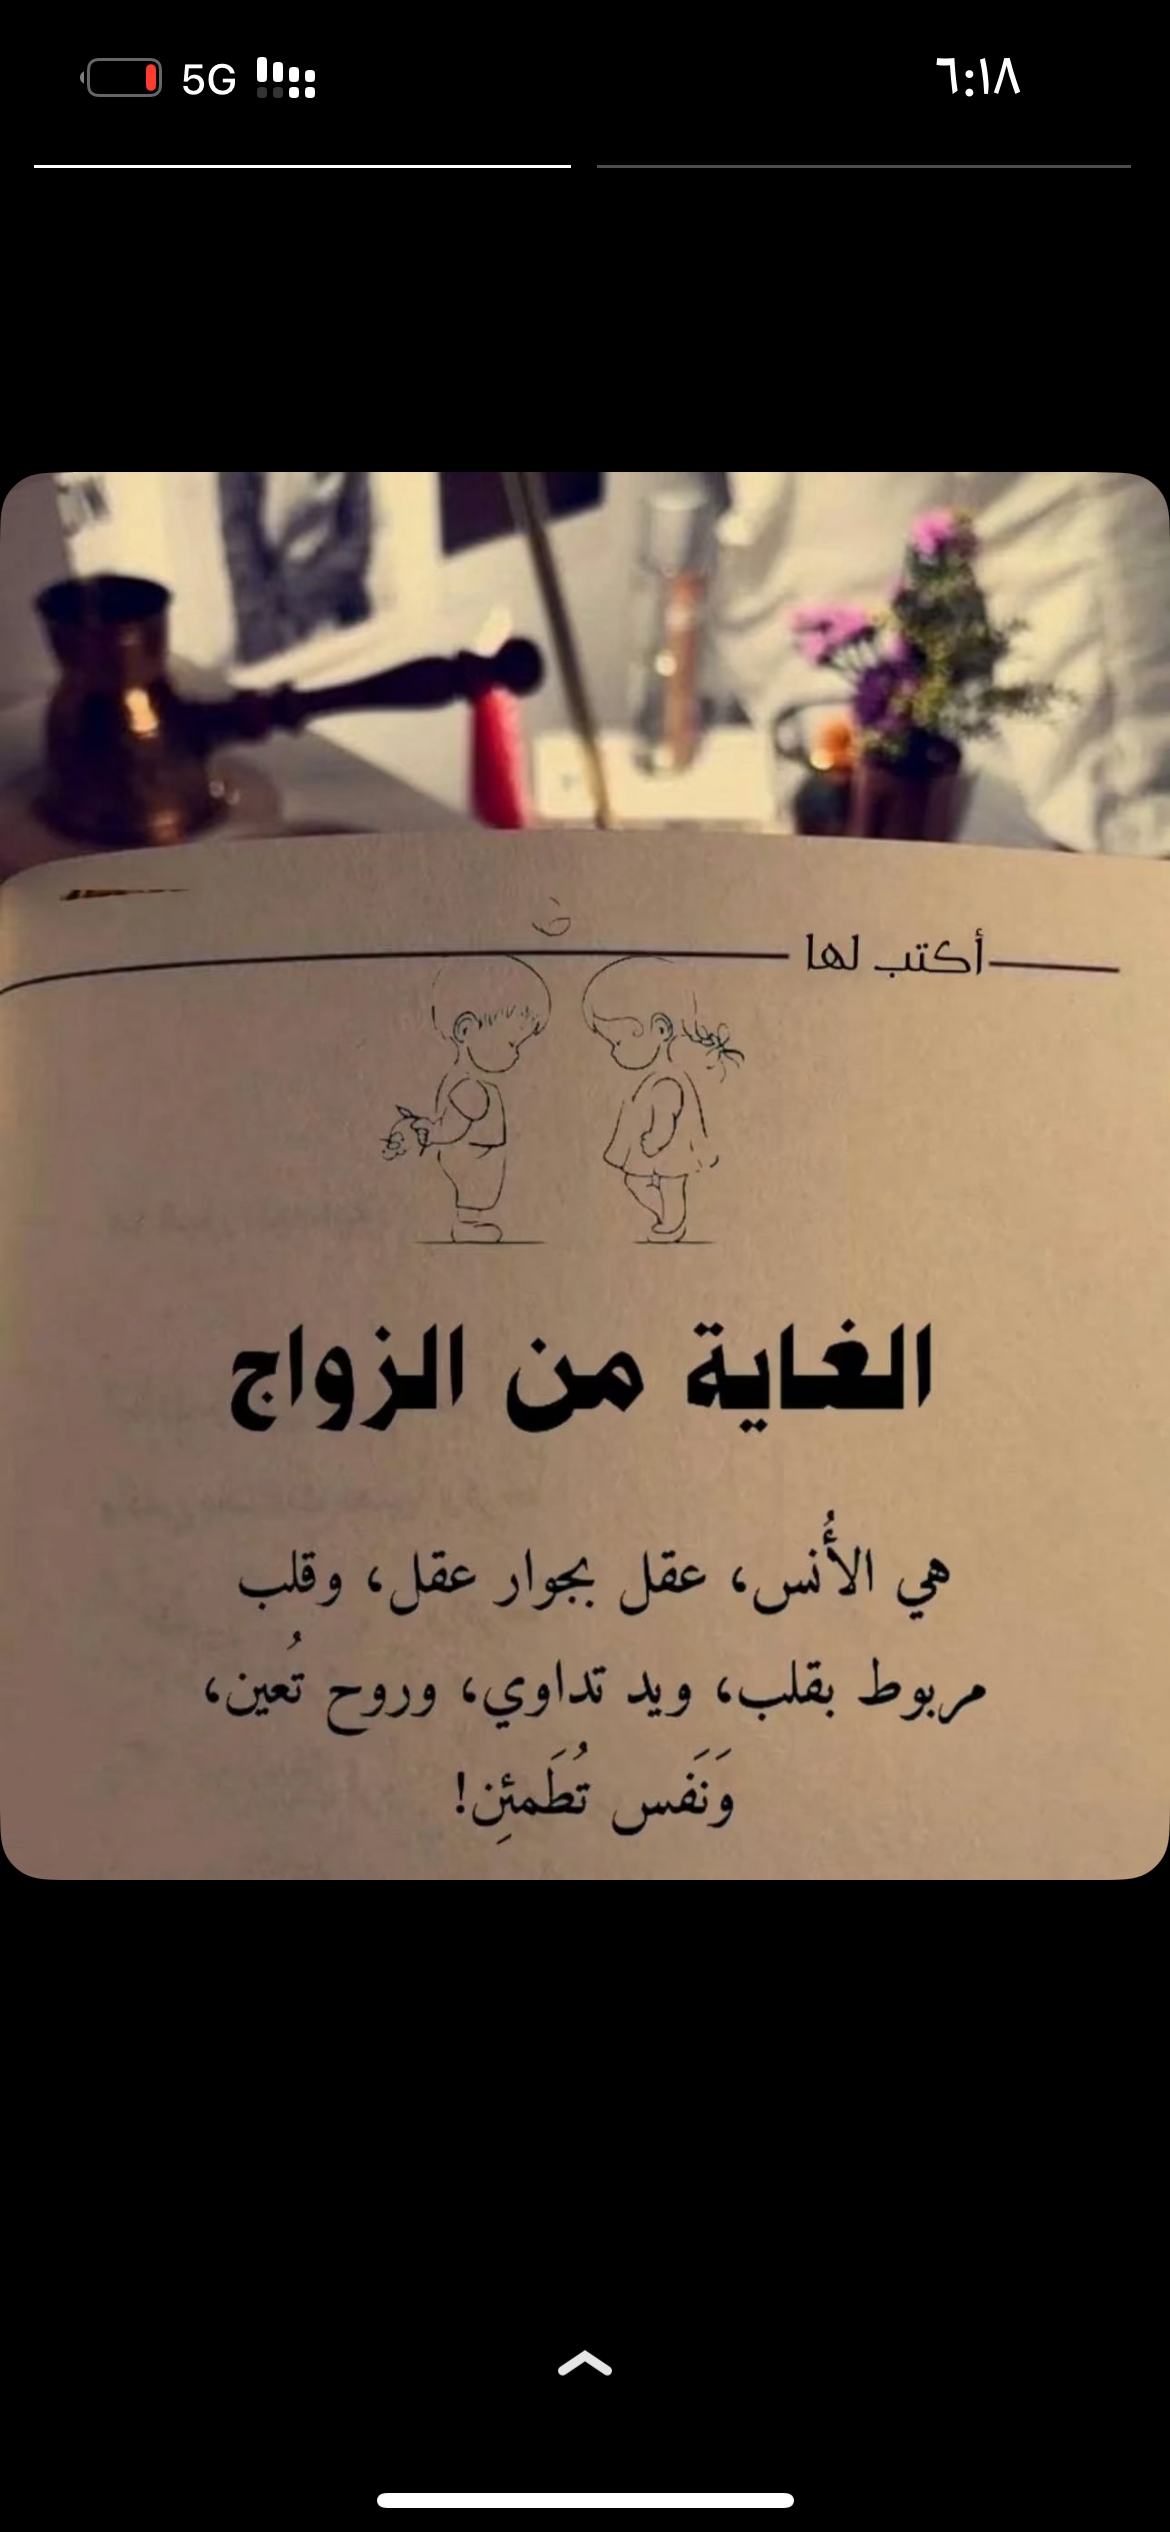 ٦:١٨
5G
أكتب لها
الغاية من الزواج
هي الأُنس، عقل بجوار عقل، وقلب
مربوط بقلب، ويد تداوي، وروح تُعين،
وَنَفس تُطَمئِن!